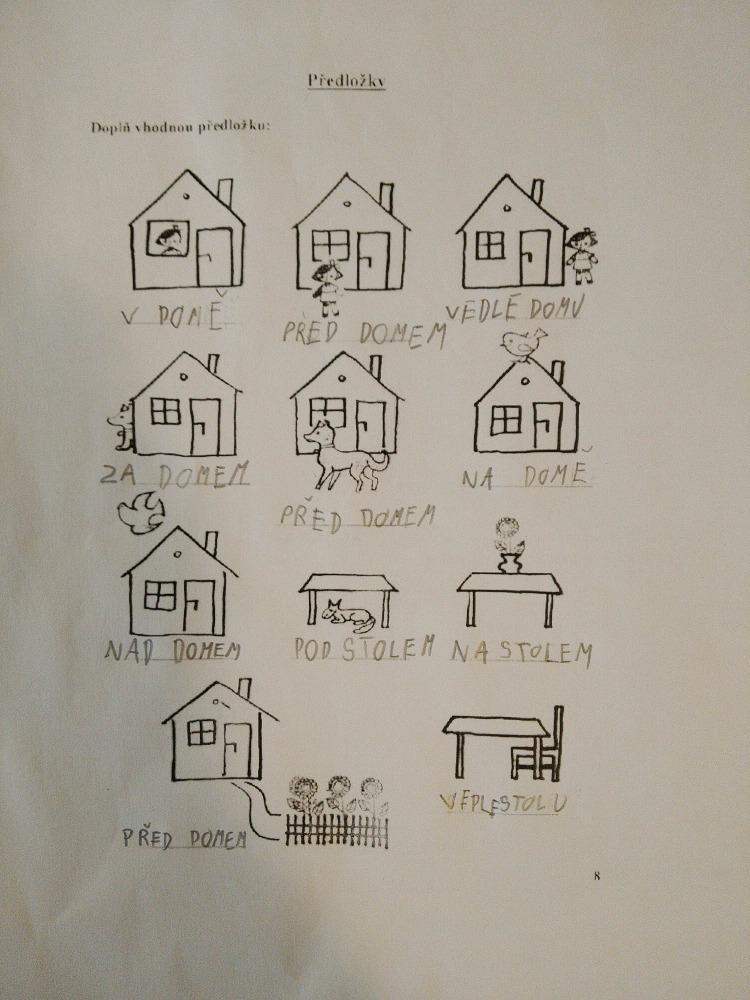 Předložky
Doplň vhodnou předložku:
V DOMĚ
PŘED DOMEM
VEDLE DOMU
ZA DOMEM
PŘED DOMEM
NA DOMĚ
NAD DOMEM
POD STOLEM
NA STOLEM
PŘED DOMEM
VEPLESTOLU
8